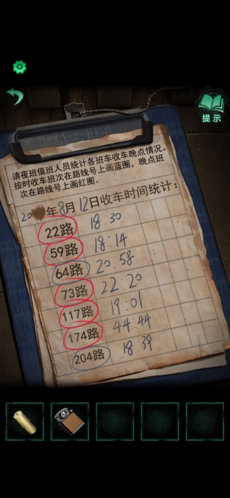 提示
请夜班值班人员统计各班车收车晚点情况。
按时收车班次在路线号上画蓝圈，晚点班
次在路线号上画红圈。
年8月12日收车时间统计：
22路 18 30
59路 18:14
64路 20 58
73路 22 20
117路 19:01
174路 44 44
204路 18 39